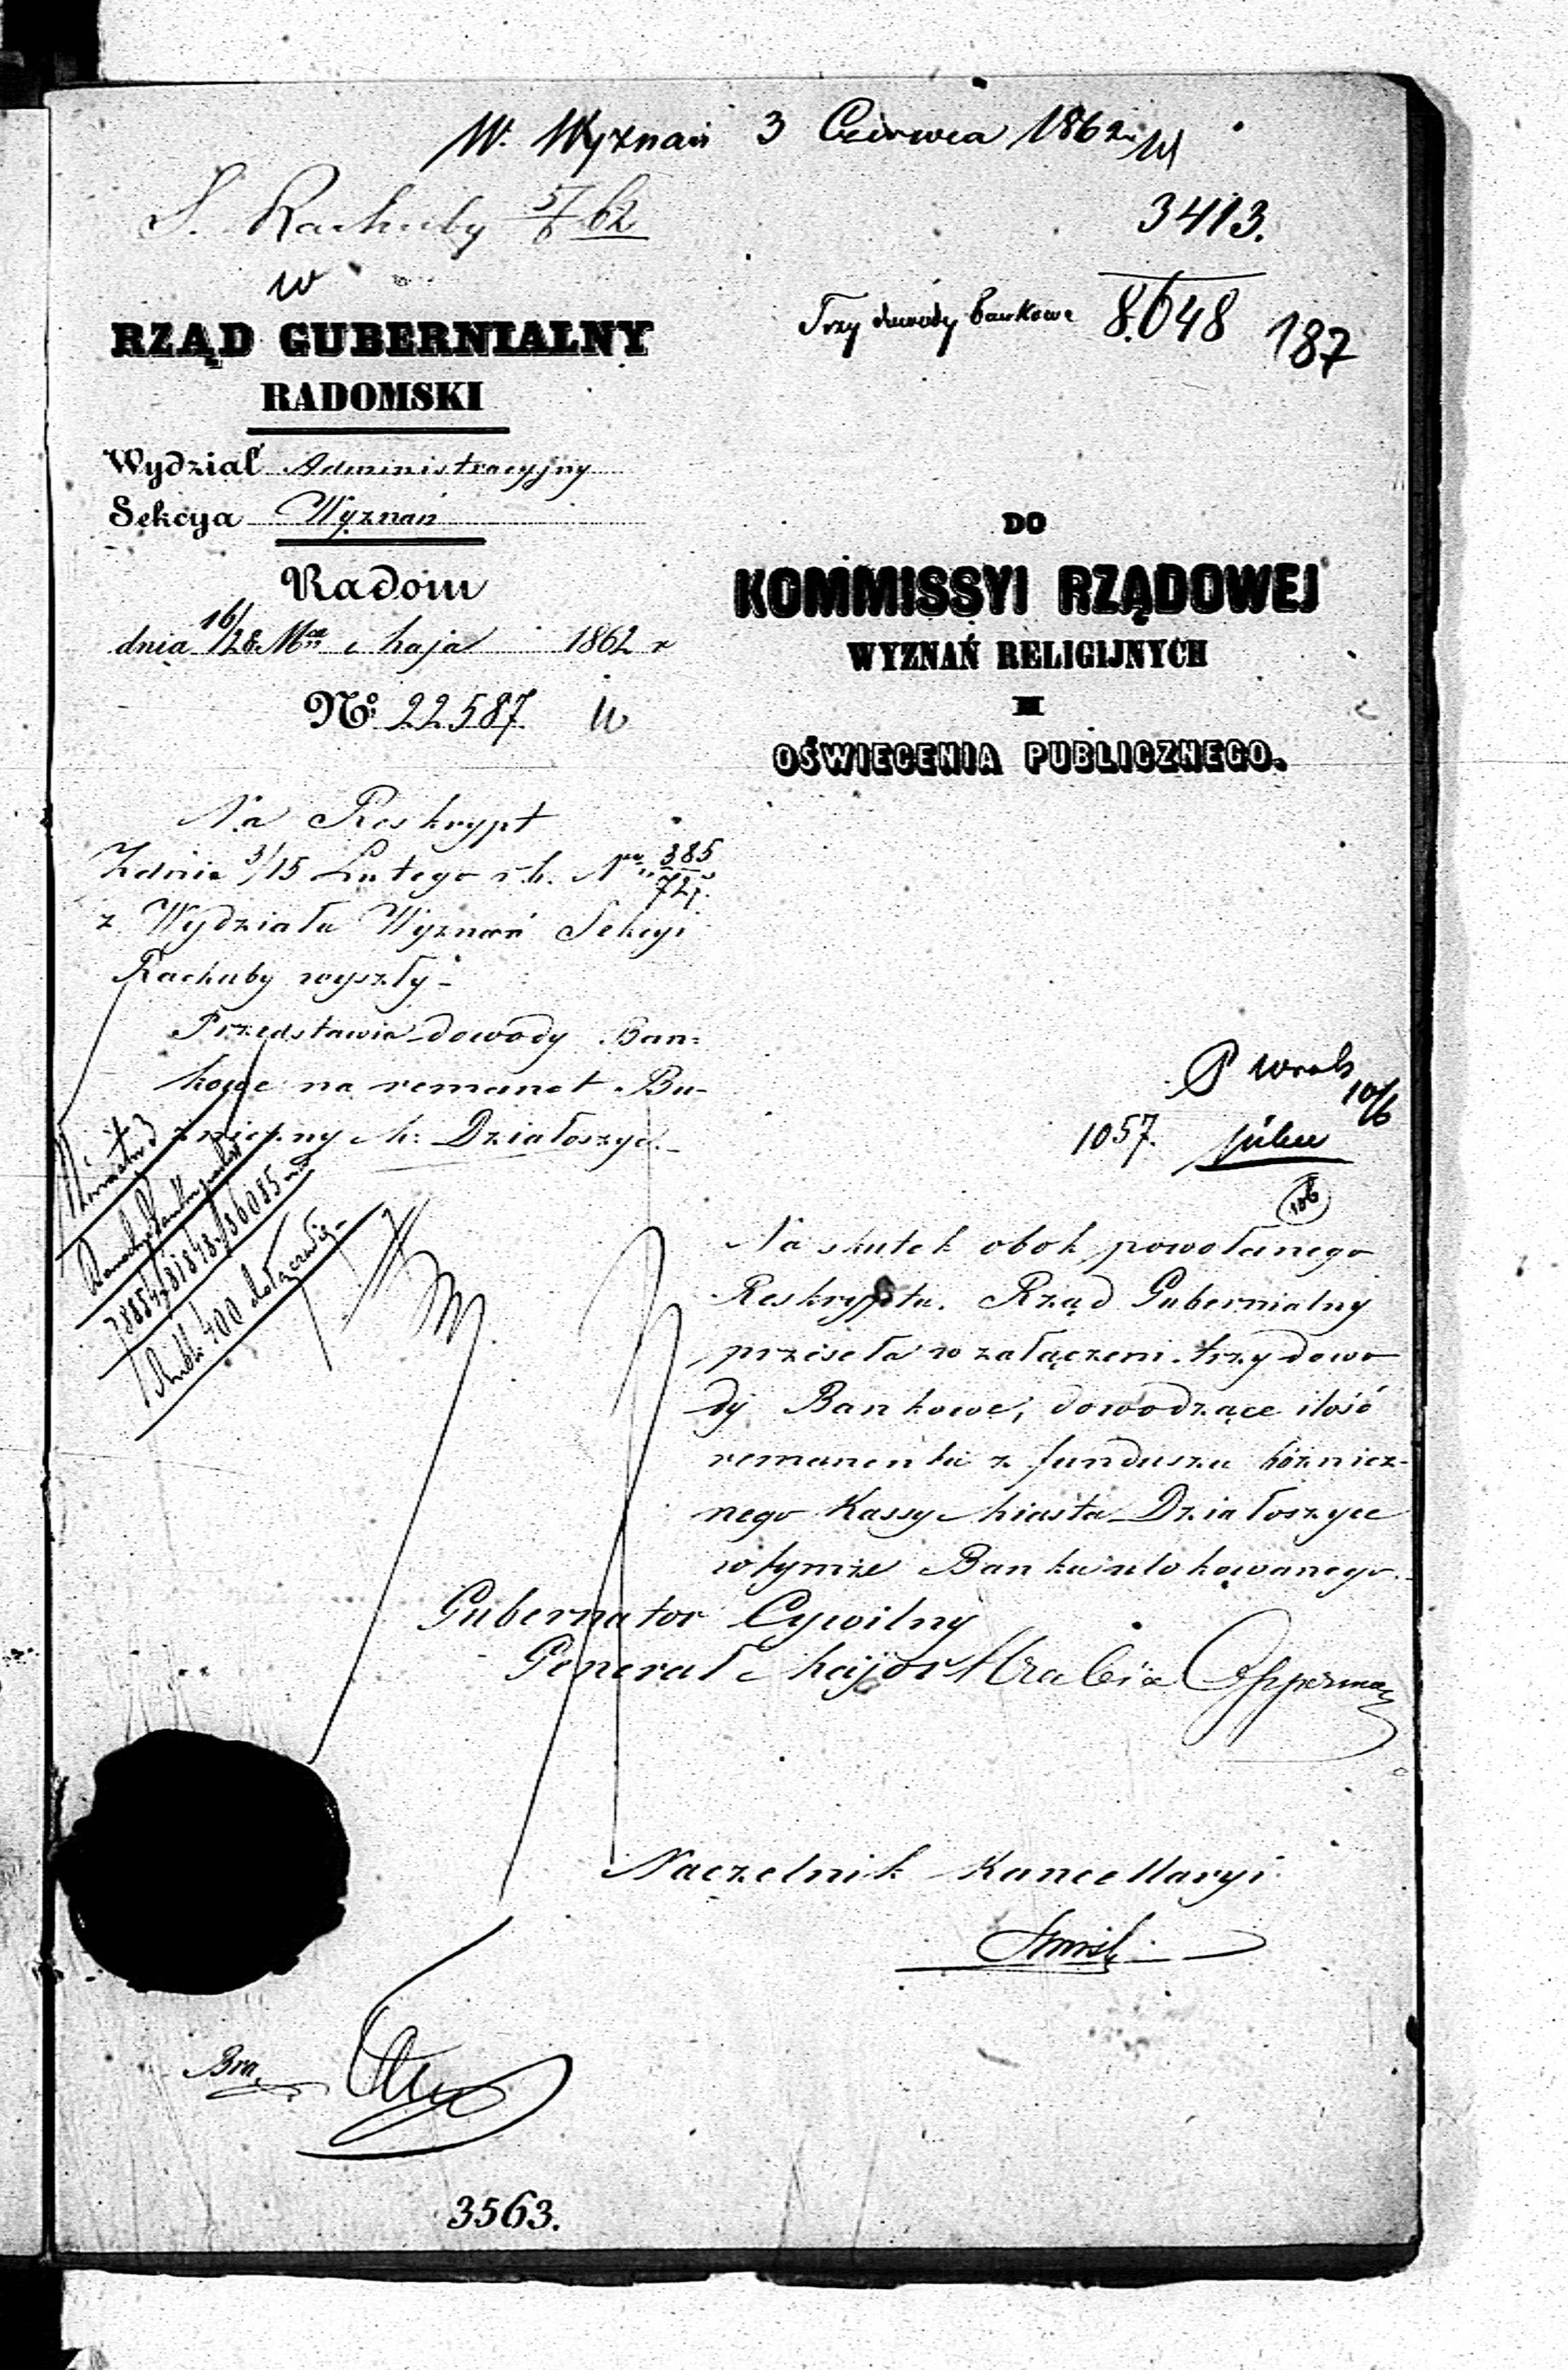 W. Wyznań 3 Czerwca 1862
S. Rachuby 5/6 62
3413.
Trzy dowody bankowe 8648 187
RZĄD GUBERNIALNY
RADOMSKI
Wydział Administracyjny
Sekcya Wyznań
Radom
dnia 16/28 Mca Maja 1862 r
No. 22587
DO
KOMMISSYI RZĄDOWEJ
WYZNAŃ RELIGIJNYCH
I
OŚWIECENIA PUBLICZNEGO.
Na Reskrypt
Zdnia 3/15 Lutego r.b. No 385/727.
z Wydziału Wyznań Sekcyi
Rachuby wyszły-
Przedstawia dowody Ban=
kowe na remanet Bu-
żniczny M: Działoszyc.-
10/6
1057.
Na skutek obok powołanego
Reskryptu. Rząd Gubernialny
prziseła w załączeni trzy dowo
dy Bankowe, dowodzące ilość
remanentu z funduszu bóżnicz-
nego Kassy Miasta Działoszyce
w tymże Banku ulokowanego.-
Gubernator Cywilny
Generał Major Hrabia Opperman
Naczelnik Kancellaryi
Bra
3563.